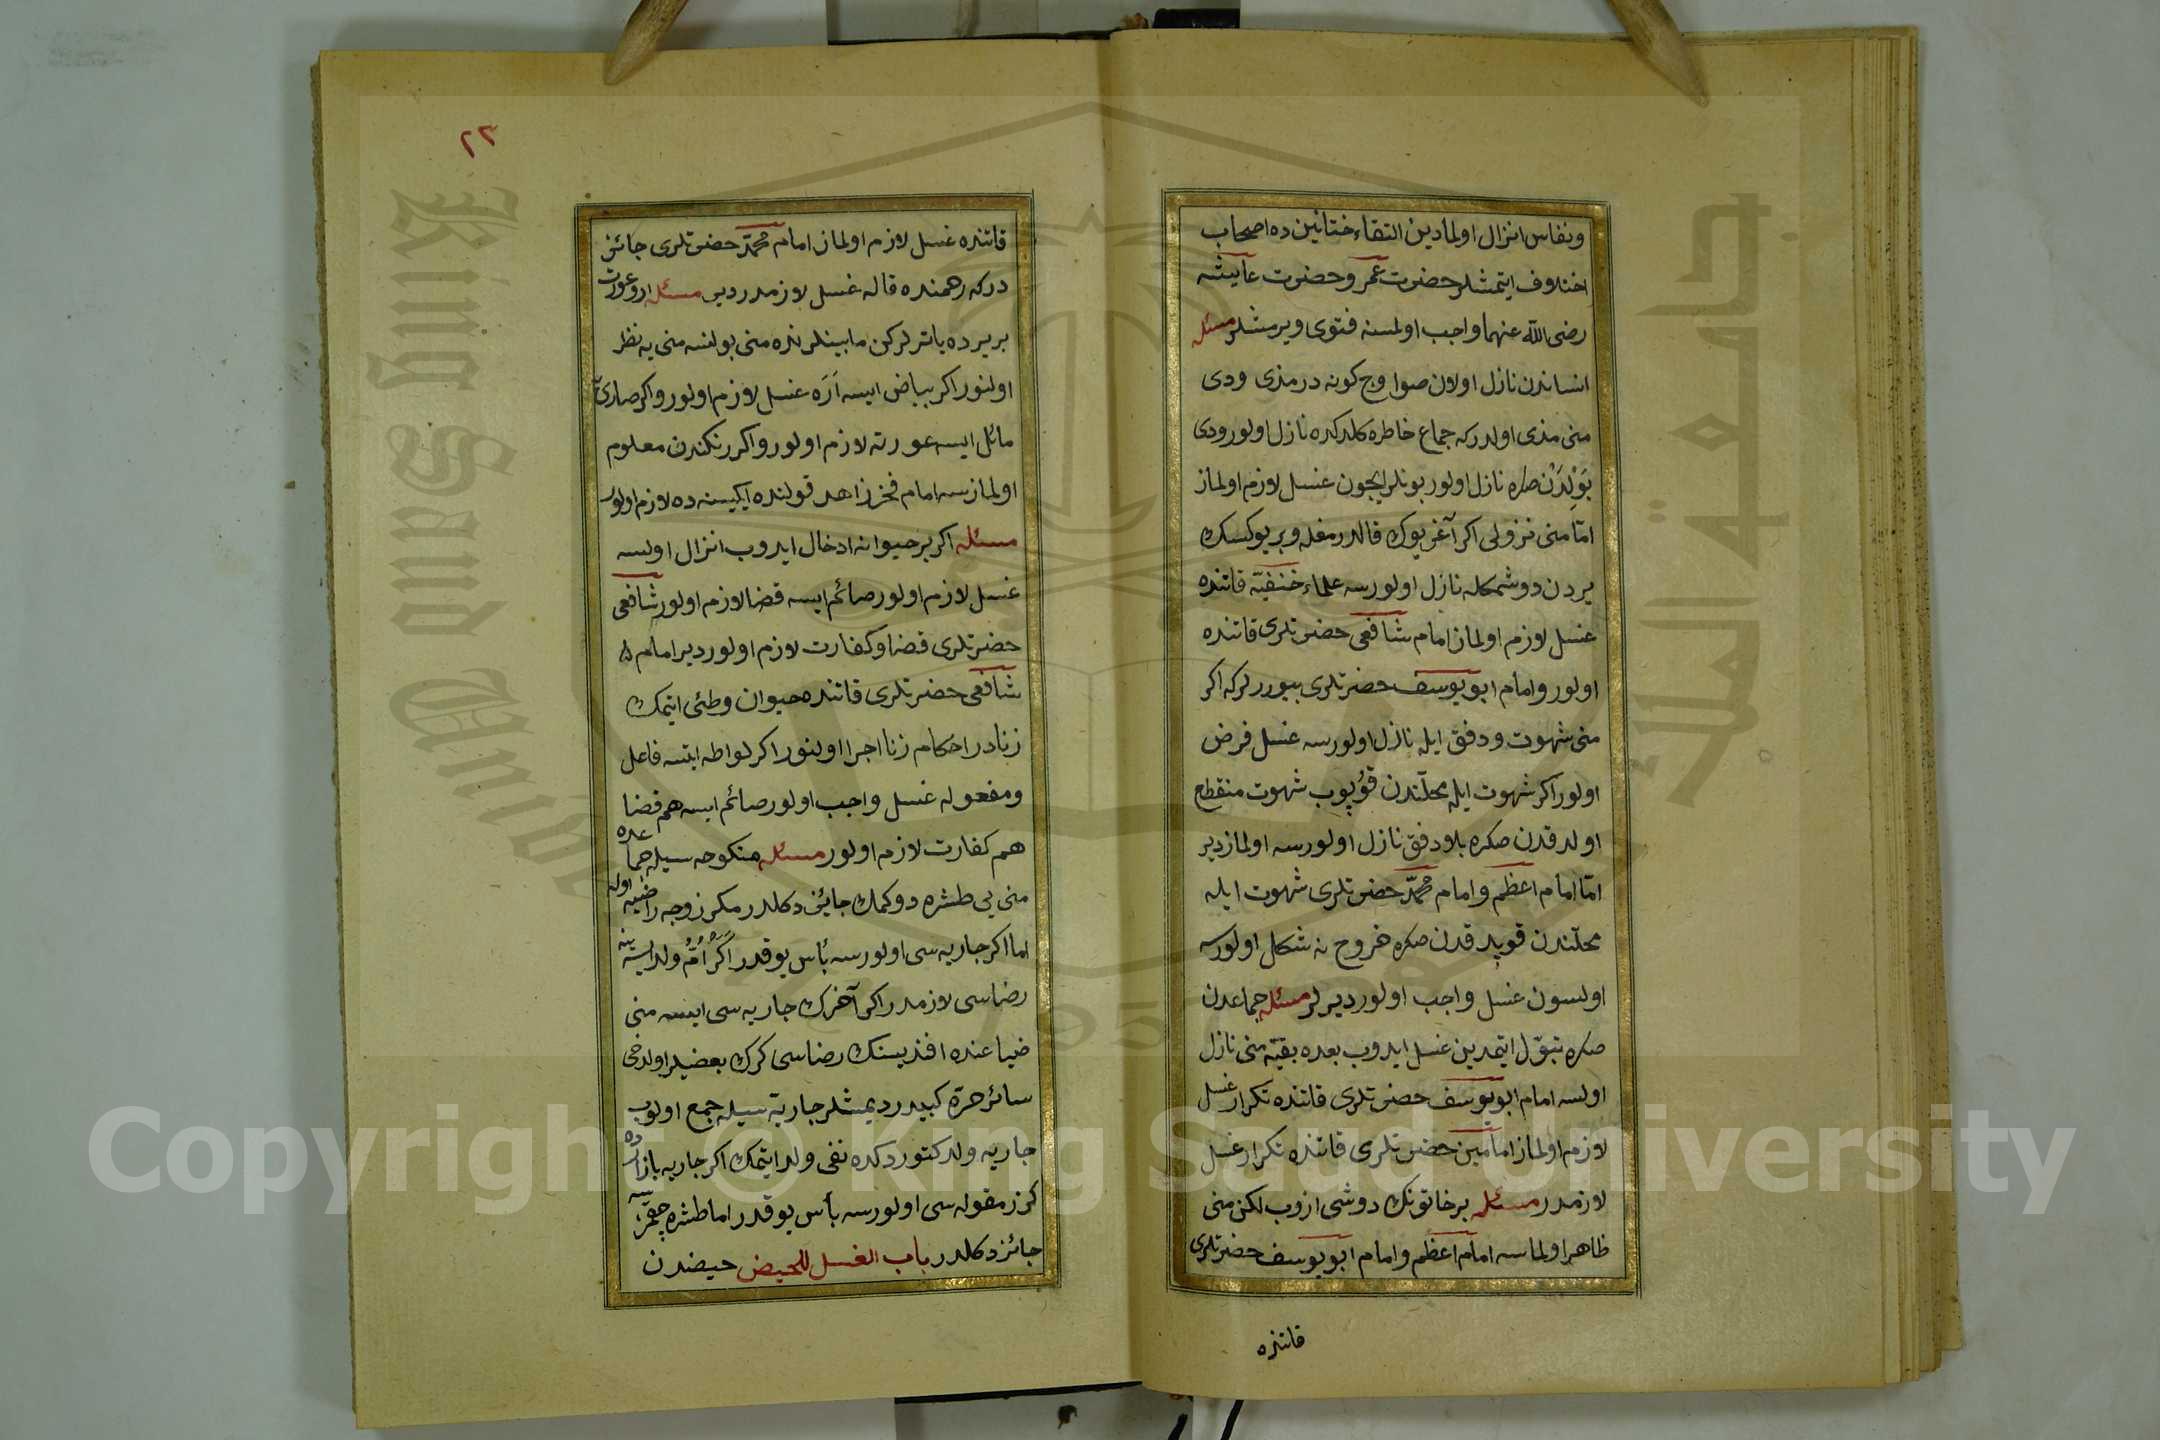 ونفاس انزال اولمادين التقاء ختانين ده اصحاب
اختلاف ايتمشلر حضرت عمر وحضرت عايشه
رضى الله عنهما واجب اولمسنه فتوى ويرمشلر مسئله
انساندن نازل اولان صو اوج كونه در مذى ودى
منى مذى اولدركه جماع خاطره كلدكده نازل اولور ودى
بَوْلِدَنْ صكره نازل اولور بونلر ايچون غسل لازم اولماز
امّا منى نزولى اكر آغر يوك قالدرمغله وبر يوكسك
يردن دوشمكله نازل اولورسه علماء حنفيّه قاتنده
غسل لازم اولماز امام شافعى حضرتلرى قاتنده
اولور وامام ابو يوسف حضرتلرى بيوررلركه اكر
منى شهوت ودفق ايله نازل اولورسه غسل فرض
اولور اكر شهوت ايله محلّندن قوُپوب شهوت منقطع
اولدقدن صكره بلا دفق نازل اولورسه اولماز دير
امّا امام اعظم وامام محمّد حضرتلرى شهوت ايله
محلّندن قوپدقدن صكره خروج نه شكل اولورسه
اولسون غسل واجب اولور ديرلر مسئله جماعدن
صكره تبوّل ايتمدين غسل ايدوب بعده بقيّه منى نازل
اولسه امام ابو يوسف حضرتلرى قاتنده تكرار غسل
لازم اولماز امامين حضرتلرى قاتنده تكرار غسل
لازمدر مسئله بر خاتونك دوشى ازوب لكن منى
ظاهر اولماسه امام اعظم وامام ابو يوسف حضرتلرى
قاتنده
٢٣
قاتنده غسل لازم اولماز امام محمّد حضرتلرى جائز
دركه رحمنده قاله غسل لازمدر دير مسئله ار وعورت
بر يرده ياترلركن مابينلرنده منى بولنسه منى يه نظر
اولنور اكر بياض ايسه اَرَه غسل لازم اولور واكر صاريّه
مائل ايسه عورته لازم اولور واكر رنكندن معلوم
اولمازسه امام فخر زاهد قولنده ايكيسنه ده لازم اولور
مسئله اكر بر حيوانه ادخال ايدوب انزال اولسه
غسل لازم اولور صائم ايسه قضا لازم اولور شافعى
حضرتلرى قضا وكفارت لازم اولور دير امام
شافعى حضرتلرى قاتنده حيوان وطئى ايتمك
زنادر احكام زنا اجرا اولنور اكر لواطه ايتسه فاعل
ومفعوله غسل واجب اولور صائم ايسه هم قضا
هم كفارت لازم اولور مسئله منكوحه سيله جماعده
منى يى طشره دوكمك جايز دكلدر مكر زوجه راضيه اوله
اما اكر جاريه سى اولورسه بأس يوقدر اَكَرْ اُمُّ ولد ايسه ينه
رضاسى لازمدر اكر آخرك جاريه سى ايسه منى
ضياعنده افنديسنك رضاسى كرك بعضيلر اولدخى
سائر حرّه كبيدر ديمشلر جاريه سيله جمع اولوب
جاريه ولد كتوردكده نفى ولد ايتمك اكر جاريه بازارده
كزر مقوله سى اولورسه بأس يوقدر اما طشره چقمزسه
جائز دكلدر باب الغسل للحيض حيضدن
Copyright © King Saud University
King Saud University
جامعة الملك